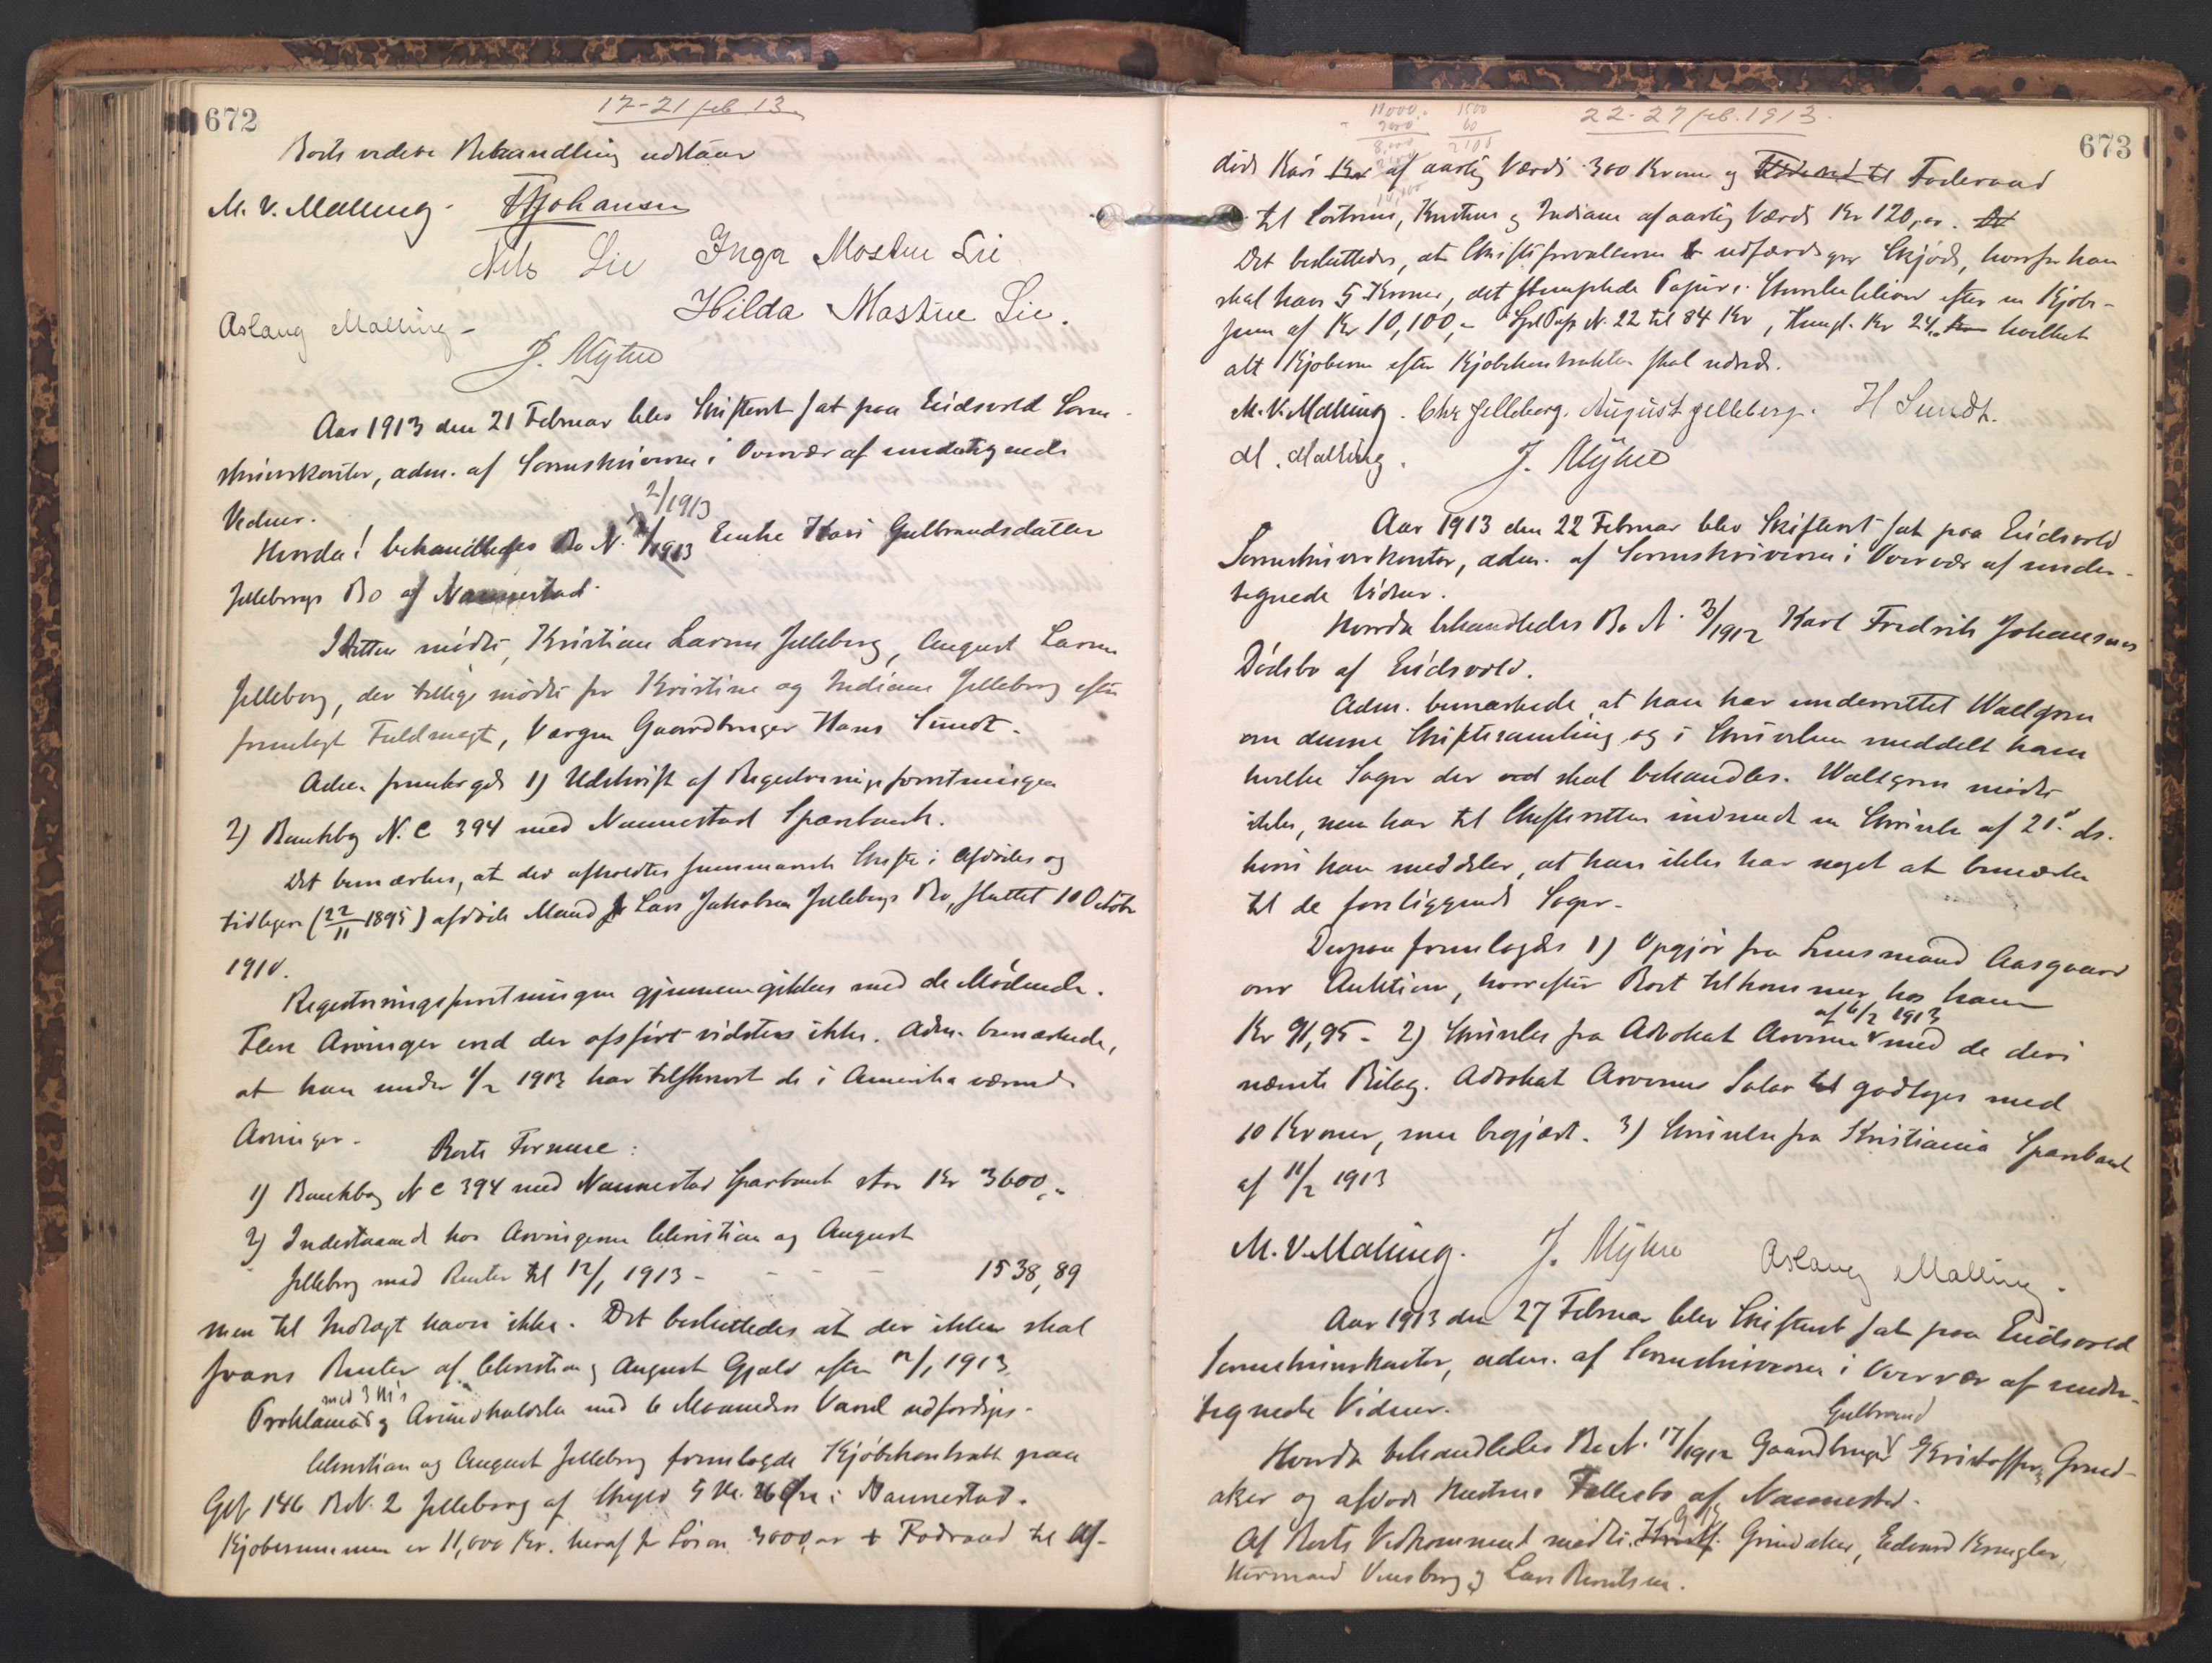 672
17-21 feb. 13.
Boets videre Behandling udstaar
M. V. Malling. Johansen
Nils Lie Inga Mostue Lie
Hilda Mostue Lie.
Aslaug Malling
J. Myhre
Aar 1913 den 21 Februar blev Skifteret sat paa Eidsvold Soren-
skriverkontor, adm. af Sorenskriveren i Overvær af undertegnede
Vidner.
2/1913
Hvorda! behandledes Bo N. Enke Kari Gulbrandsdatter
Jellebergs Bo af Nannestad.
I Retten mødte, Kristian Larsen Jelleberg, August Larsen
Jelleberg, der tillige mødte for Kristine og Indiane Jelleberg efter
fremlagt Fuldmagt, Værgen Gaardbruger Hans Sundt.
Adm. fremlagde 1) Udskrift af Registreringsforretningen
2) Bankbog N. C 394 med Nannestad Sparebank.
Det bemærkes, at der afholdtes summarisk Skifte i Afdødes og
tidligere (22/11 1895) afdøde Mand Lars Jakobsen Jellebergs Bo, sluttet 10 Octobr
1910.
Registreringsforretningen gjennemgikkes med de Mødende.
Flere Arvinger end der opført vidstes ikke. Adm. bemærkede,
at han under 1/2 1913 har tilskrevet de i Amerika værende
Arvinger.
Boets Formue:
1) Bankbog N C 394 med Nannestad Sparebank stor Kr 3600,-
2) Indestaaende hos Arvingerne Christian og August
Jelleberg med Renter til 12/1 1913 - - - - 1538,89
men til Indtægt haves ikke. Det besluttedes at der ikke skal
svares Renter af Christian og August Gjæld efter 12/1 1913.
med 3 Kr's
Proklama og Arveindkaldelse med 6 Maaneders Varsel udfærdiges.
Christian og August Jelleberg fremlagde Kjøbekontrakt paa
G. 146 B.N. 2 Jelleberg af Skyld 5 Mk. 26 Øre i Nannestad.
Kjøbesummen er 11,000 Kr. heraf for Løsøre 3000,00 + Føderaad til Af-
673
22-27 feb. 1913.
11000,- 1500
3000 60
8,000 2100
2100
døde Kari Kr af aarlig Værdi 300 Kroner og Føderaad til Føderaad
til Kristine og Indiane af aarlig Værdi Kr 120,00. Det
Det besluttedes, at Skifteforvalteren udfærdiger Skjøde, hvorfor han
skal have 5 Kroner, det stemplede Papir i efter en Kjøbe-
sum af Kr 10,100,- N. 22 til 84 Kr, Kr 24, hvilket
alt Kjøberne efter Kjøbekontrakten skal udrede.
M. V. Malling. Chr Jelleberg. August Jelleberg. H Sundt.
M. Malling. J. Myhre
Aar 1913 den 22 Februar blev Skifteret sat paa Eidsvold
Sorenskriverkontor, adm. af Sorenskriveren i Overvær af under-
tegnede Vidner.
Hvorda behandledes Bo N. 3/1912 Karl Fredrik Johansens
Dødsbo af Eidsvold.
Adm. bemærkede, at han har underrettet Wallgren
om denne Skiftesamling og i Skrivelsen meddelt ham
hvilke Sager der ved skal behandles. Wallgren mødte
ikke, men har til Skifteretten indsendt en Skrivelse af 21' ds.
hvori han meddeler, at han ikke har noget at bemærke
til de foreliggende Sager.
Derpaa fremlagdes 1) Opgjør fra Lensmand Aasgaard
over Auktion, hvorefter Boet tilkommer hos ham
af 6/2 1913
Kr 91,95 - 2) Skrivelse fra Advokat Arvesen med de deri
nævnte Bilag. Advokat Arvesens Salær godtages med
10 Kroner, som begjært. 3) Skrivelse fra Kristiania Sparebank
af 11/2 1913
M. V. Malling. J. Myhre Aslaug Malling.
Aar 1913 den 27 Februar blev Skifteret sat paa Eidsvold
Sorenskriverkontor, adm. af Sorenskriveren i Overvær af under-
tegnede Vidner.
Gulbrand
Hvorda behandledes Bo N. 17/1912 Gaardbruger Kristoffersen Grind-
aker og afdøde Hustrus Fællesbo af Nannestad.
Af Boets Vedkommende mødte Grindaker, Edvard
og Lars Berntsen.